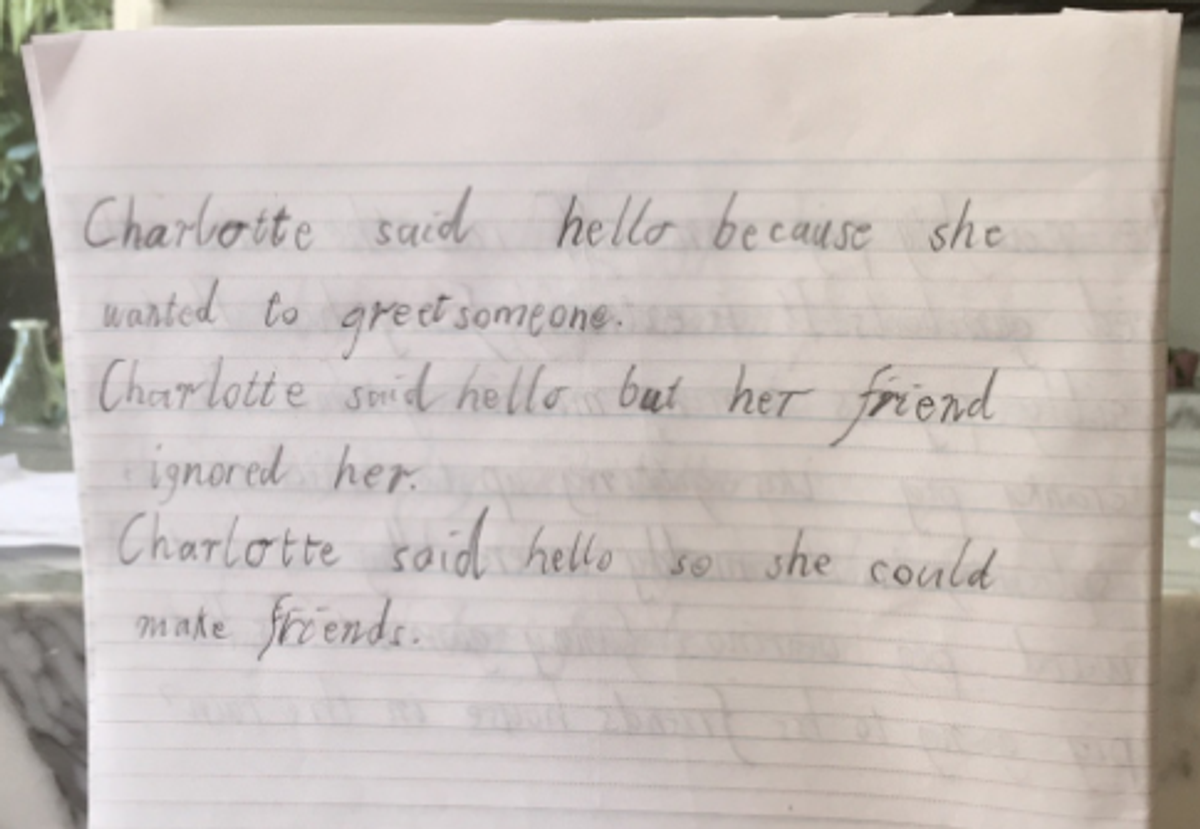 Charlotte said hello because she
wanted to greet someone.
Charlotte said hello but her friend
ignored her.
Charlotte said hello so she could
make friends.